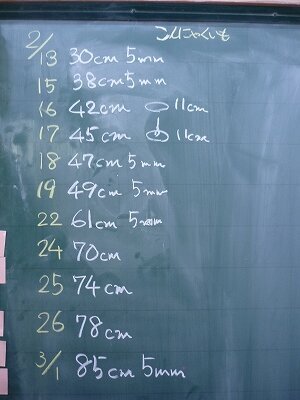 こんにゃくいも
2/13 30cm 5mm
15 38cm5mm
16 42cm 11cm
17 45cm 11cm
18 47cm 5mm
19 49cm 5mm
22 61cm 5mm
24 70cm
25 74cm
26 78cm
3/1 85cm 5mm